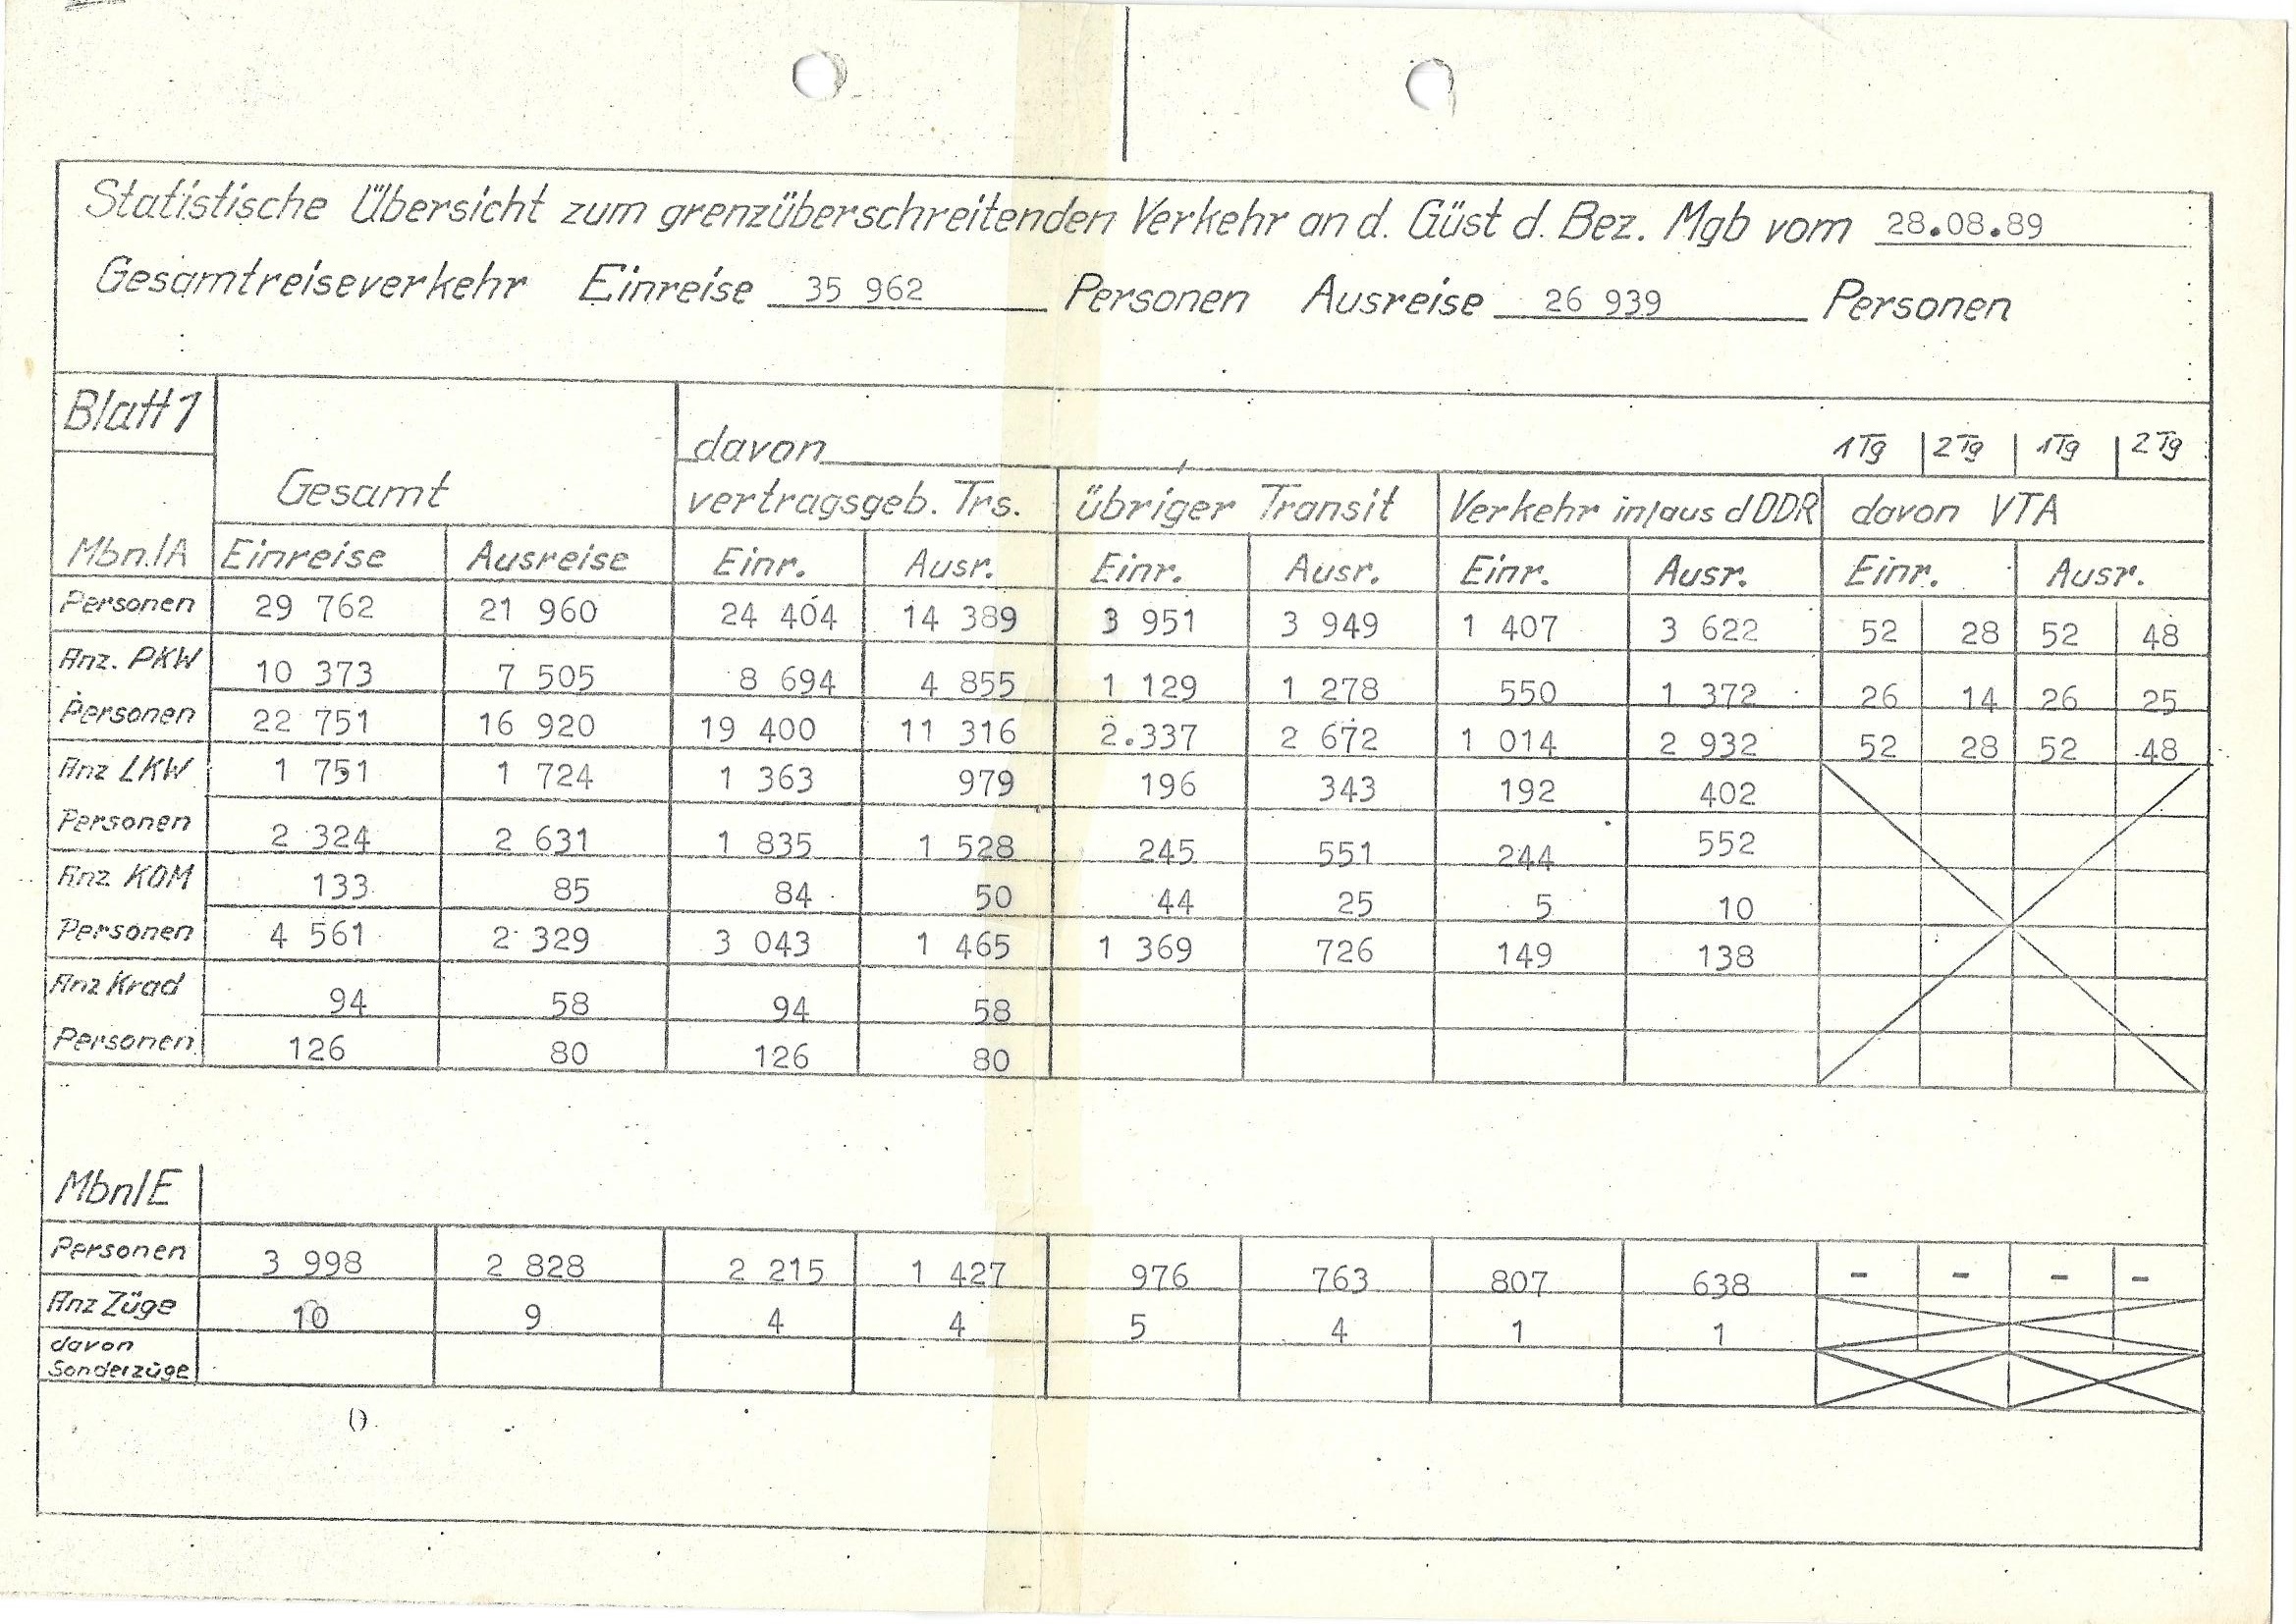 Statistische Übersicht zum grenzüberschreitenden Verkehr an d. Güst d. Bez. Mgb vom 28.08.89
Gesamtreiseverkehr Einreise 35 962 Personen Ausreise 26 939 Personen
Blatt 1
davon 1 Tg 2 Tg 1 Tg 2 Tg
Gesamt vertragsgeb. Trs. übriger Transit Verkehr in/aus d DDR davon VTA
Mbn./A Einreise Ausreise Einr. Ausr. Einr. Ausr. Einr. Ausr. Einr. Ausr.
Personen 29 762 21 960 24 404 14 389 3 951 3 949 1 407 3 622 52 28 52 48
Anz. PKW 10 373 7 505 8 694 4 855 1 129 1 278 550 1 372 26 14 26 25
Personen 22 751 16 920 19 400 11 316 2.337 2 672 1 014 2 932 52 28 52 48
Anz LKW 1 751 1 724 1 363 979 196 343 192 402
Personen 2 324 2 631 1 835 1 528 245 551 244 552
Anz KOM 133 85 84 50 44 25 5 10
Personen 4 561 2 329 3 043 1 465 1 369 726 149 138
Anz Krad 94 58 94 58
Personen 126 80 126 80
Mbn/E
Personen 3 998 2 828 2 215 1 427 976 763 807 638 - - - -
Anz Züge 10 9 4 4 5 4 1 1
davon
Sonderzüge